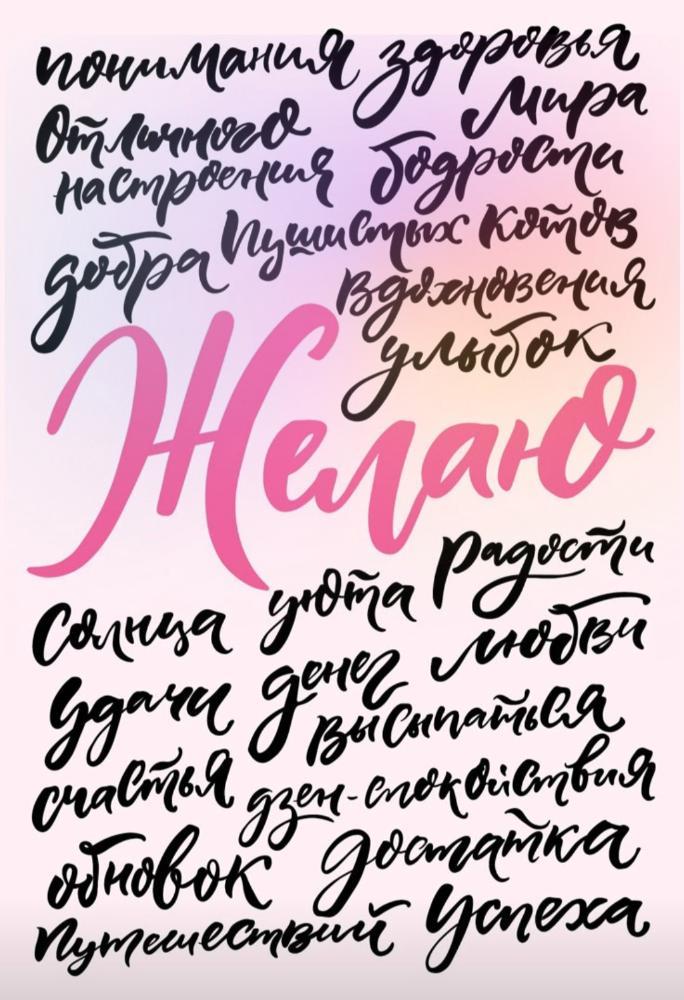 понимания здоровья
Отличного мира
настроения бодрости
добра пушистых котов
вдохновения
улыбок
Желаю
радости
Солнца уюта
любви
Удачи денег
высыпаться
счастья дзен-спокойствия
обновок достатка
путешествий успеха